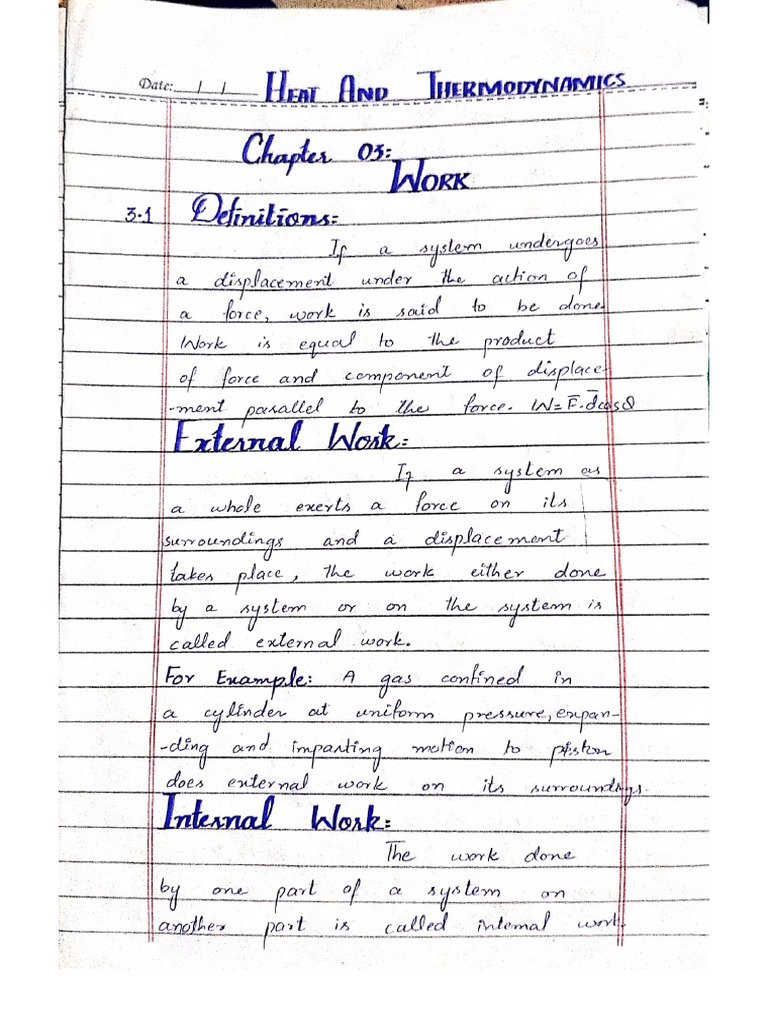 Date: / / HEAT AND THERMODYNAMICS
Chapter 03:
WORK
3.1 Definitions:
If a system undergoes
a displacement under the action of
a force, work is said to be done.
Work is equal to the product
of force and component of displace-
-ment parallel to the force. W = F̄.d̄cosθ
External Work:
If a system as
a whole exerts a force on its
surroundings and a displacement
takes place, the work either done
by a system or on the system is
called external work.
For Example: A gas confined in
a cylinder at uniform pressure, expan-
-ding and imparting motion to piston
does external work on its surroundings.
Internal Work:
The work done
by one part of a system on
another part is called internal work.